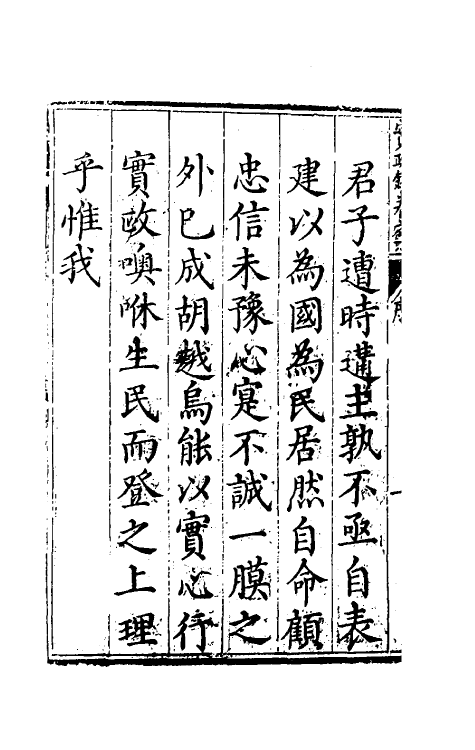 君子遭時遘主孰不亟自表
建以為國為民居然自命顧
忠信未豫心寔不誠一膜之
外已成胡越烏能以實心行
實政噢咻生民而登之上理
乎惟我